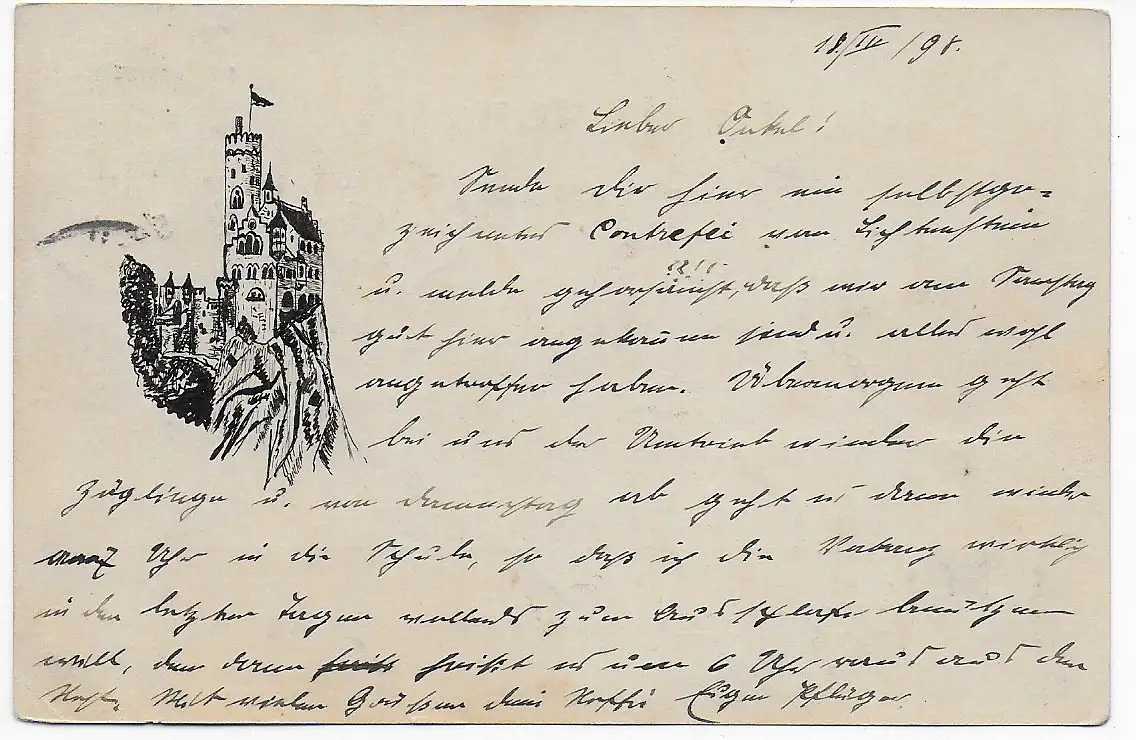 18./IV /98.
Lieber Onkel!
Sende dir hier ein selbstge-
zeichnetes Contrefei von Lichtenstein
??!!
u. melde gehorsamst, daß wir am Samstag
gut hier angekommen sind u. alles wohl
angetroffen haben. Übermorgen geht
bei uns der Umtrieb wieder die
Zöglinge u. von Donnerstag ab geht es dann wieder
Uhr in die Schule, so daß ich die Vakanz wirklich
in den letzten Tagen vollends zum Ausschlafen benützen
will, den dann heißt es um 6 Uhr raus aus den
Mit vielen Grüßen dein Neffe Eugen Pflüger.